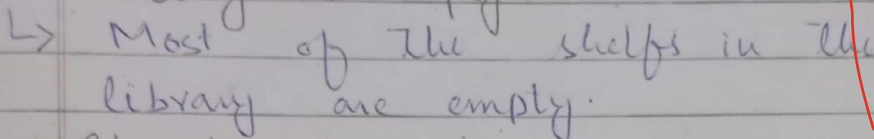 ↳ Most of the shelfs in the
library are empty.